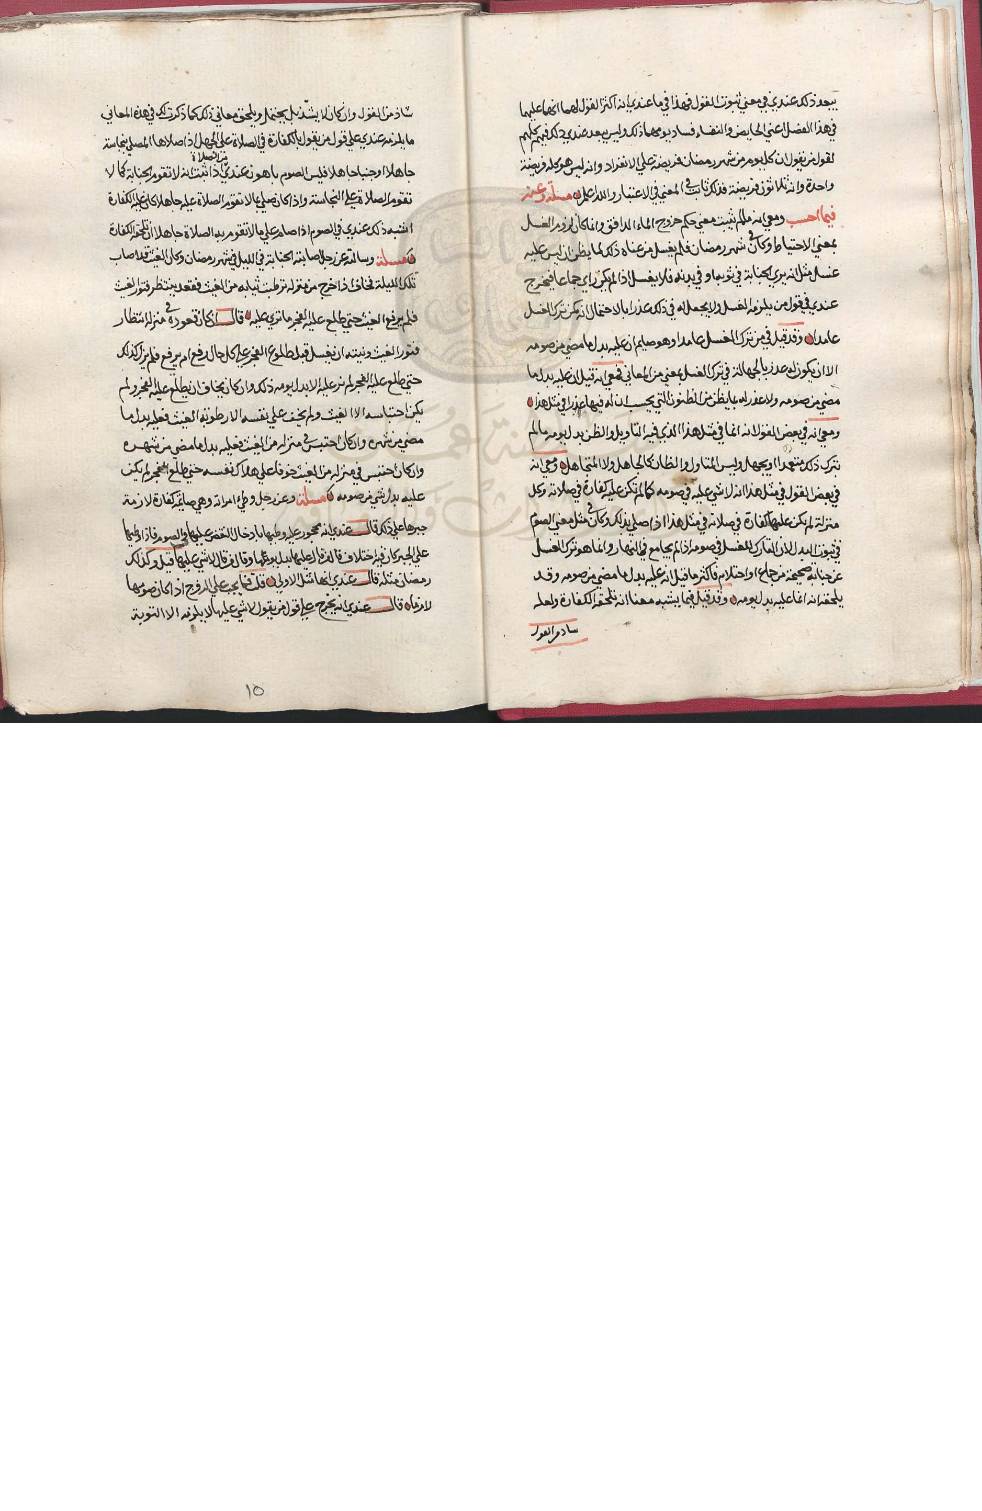 يبعد ذلك عندي في معنى ثبوت القول فهذا في ما عندي انه اكثر القول لهما انهما عليهما
في هذا الفصل اعني الحايض والنفساء فساد يومهما ذلك وليس يبعد عندي ذلك فيهم كلهم
لقول من يقول ان كل يوم من شهر رمضان فريضة على الانفراد وانه ليس هو كله فريضة
واحدة وانه ثلاثون فريضة فذلك ثابت في المعنى في الاعتبار والله اعلم مسئلة وعنه
فيما احسب ومعي انه ما لم تثبت معنى حكم خروج الماء الدافق وانما كان لزوم الغسل
بمعنى الاحتياط وكان في شهر رمضان فلم يغسل من عناه ذلك لما يظن ان ليس عليه
غسل مثل انه يرى الجنابة في ثوبه او في بدنه فلا يغسل اذا لم يكن راى جماعا فيخرج
عندي في قول من يلزمه الغسل ولا يجعل له في ذلك عذرا بالاحتمال انه يكن ترك الغسل
عامدا وقد قيل في من ترك الغسل عامدا وهو صايم ان عليه بدل ما مضى من صومه
الا ان يكون له عذر بالجهالة في ترك الغسل بمعنى من المعاني فمعي انه قيل ان عليه بدل ما
مضى من صومه ولا عذر له بما يظن من الظنون التي يحسب ان له فيها عذر في مثل هذا
ومعي انه في بعض القول انه انما في مثل هذا الذي فيه التاويل والظن بدل يومه ما لم
يترك ذلك متعمدا او بجهل وليس المتاول والظان كالجاهل ولا المتجاهل ومعي انه
في بعض القول في مثل هذا انه لا شي عليه في صومه كما لم تكن عليه كفارة في صلاته وكل
منزلة لم يكن عليه بها كفارة في صلاته في مثل هذا اذا صلى بذلك وكان في مثل معنى الصوم
في ثبوت البدل لان التارك للغسل في صومه اذا لم يجامع في النهار وانما هو ترك الغسل
عن جنابة صحيحة من جماع او احتلام فاكثر ما قيل انه عليه بدل ما مضى من صومه وقد
يلحقه انه انما عليه بدل يومه وقد قيل فيما يشبه معنا انه تلحقه الكفارة ولعله
شاذ من القول
شاذ من القول وان كان لا يشذ بل يحتمل ويلحق معاني ذلك كما ذكرت لك في هذه المعاني
ما يلزمه عندي على قول من يقول بالكفارة في الصلاة على الجهل اذا صلاها المصلي بنجاسة
جاهلا او جنبا جاهلا فليس الصوم باهون عندي من الصلاة اذا ثبت انه لا تقوم الجنابة كما لا
تقوم الصلاة على النجاسة واذا كان صلى بما لا تقوم الصلاة عليه جاهلا كان عليه الكفارة
اشبه ذلك عندي في الصوم اذا صام على ما لا تقوم به الصلاة جاهلا ان تلحقه الكفارة
مسئلة وسالته عن رجل اصابته الجنابة في الليل في شهر رمضان وكان الغيث قد اصاب
تلك الليلة فخاف اذا خرج من منزله ترطبت ثيابه من الغيث فقعد ينتظر فتور الغيث
فلم يرفع الغيث حتى طلع عليه الفجر ما ترى عليه قال ان كان قعوده في منزله انتظار
فتور الغيث ونيته ان يغسل قبل طلوع الفجر على كل حال رفع ام لم يرفع فلم يزل كذلك
حتى طلع عليه الفجر لم نر عليه الا بدل يومه ذلك وان كان يخاف ان يطلع عليه الفجر ولم
يكن احتباسه الا الغيث ولم يخف على نفسه الا رطوبة الغيث فعليه بدل ما
مضى من شهره وان كان احتبس في منزله من الغيث فعليه بدل ما مضى من شهره
وان كان احتبس في منزله من الغيث خوفا على هلاك نفسه حتى طلع الفجر لم يكن
عليه بدل شي من صومه مسئلة وعن رجل وطئ امراته وهي صايمة كفارة لازمة
جبرها على ذلك قال عندي انه محجور عليه وطيها بادخال الضرر عليها في الصوم فاذا وطيها
على الجبر كان فيه اختلاف قال من قال عليها بدل يومها وقال من قال لا شي عليها قيل وكذلك
رمضان مثله قال عندي انها مثل الاولى قلت فما يجب على الزوج اذا كان صومها
لازما قال عندي انه يخرج على قول من يقول لا شي عليها لا يلزمه الا التوبة
١٥